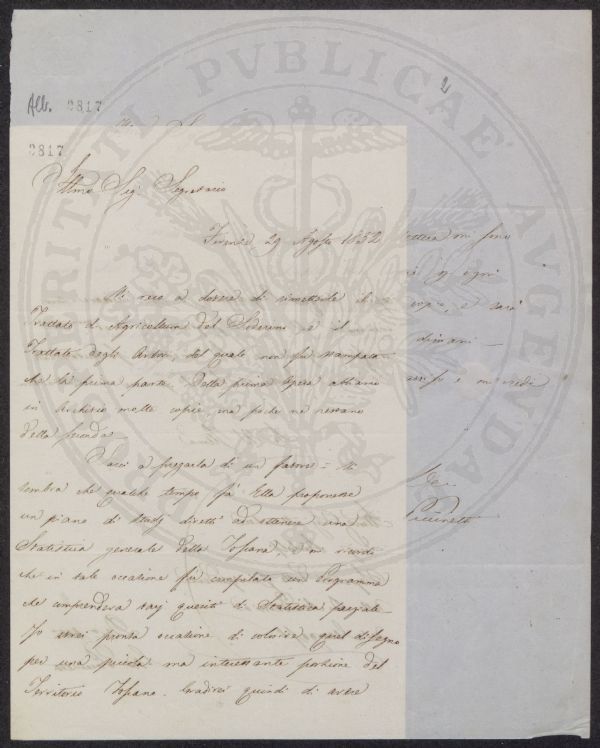 Alb. 2817
2
2817
Illmo Sig. Segretario
Firenze 29 Agosto 1852
Mi reco a dovere di rimetterle il
Trattato di Agricoltura del Soderini e il
Trattato degli Arbori, del quale non fu stampata
che la prima parte. Della prima Opera abbiamo
in Archivio molte copie, ma poche ne restano
della seconda.
a pregarla di un favore = Mi
sembra che qualche tempo fa Ella proponesse
un piano di studj diretti ad ottenere una
Statistica generale della Toscana, e mi ricordo
che in tale occasione fu compilato un Programma
che comprendeva varj quesiti di Statistica parziale
Io avrei pronta occasione di colorire quel disegno
per una piccola ma interessante porzione del
Territorio Toscano. Gradirei quindi di avere
ogni
copie, e sarà
dimani
PROSPERITATI PVBLICAE AVGENDAE